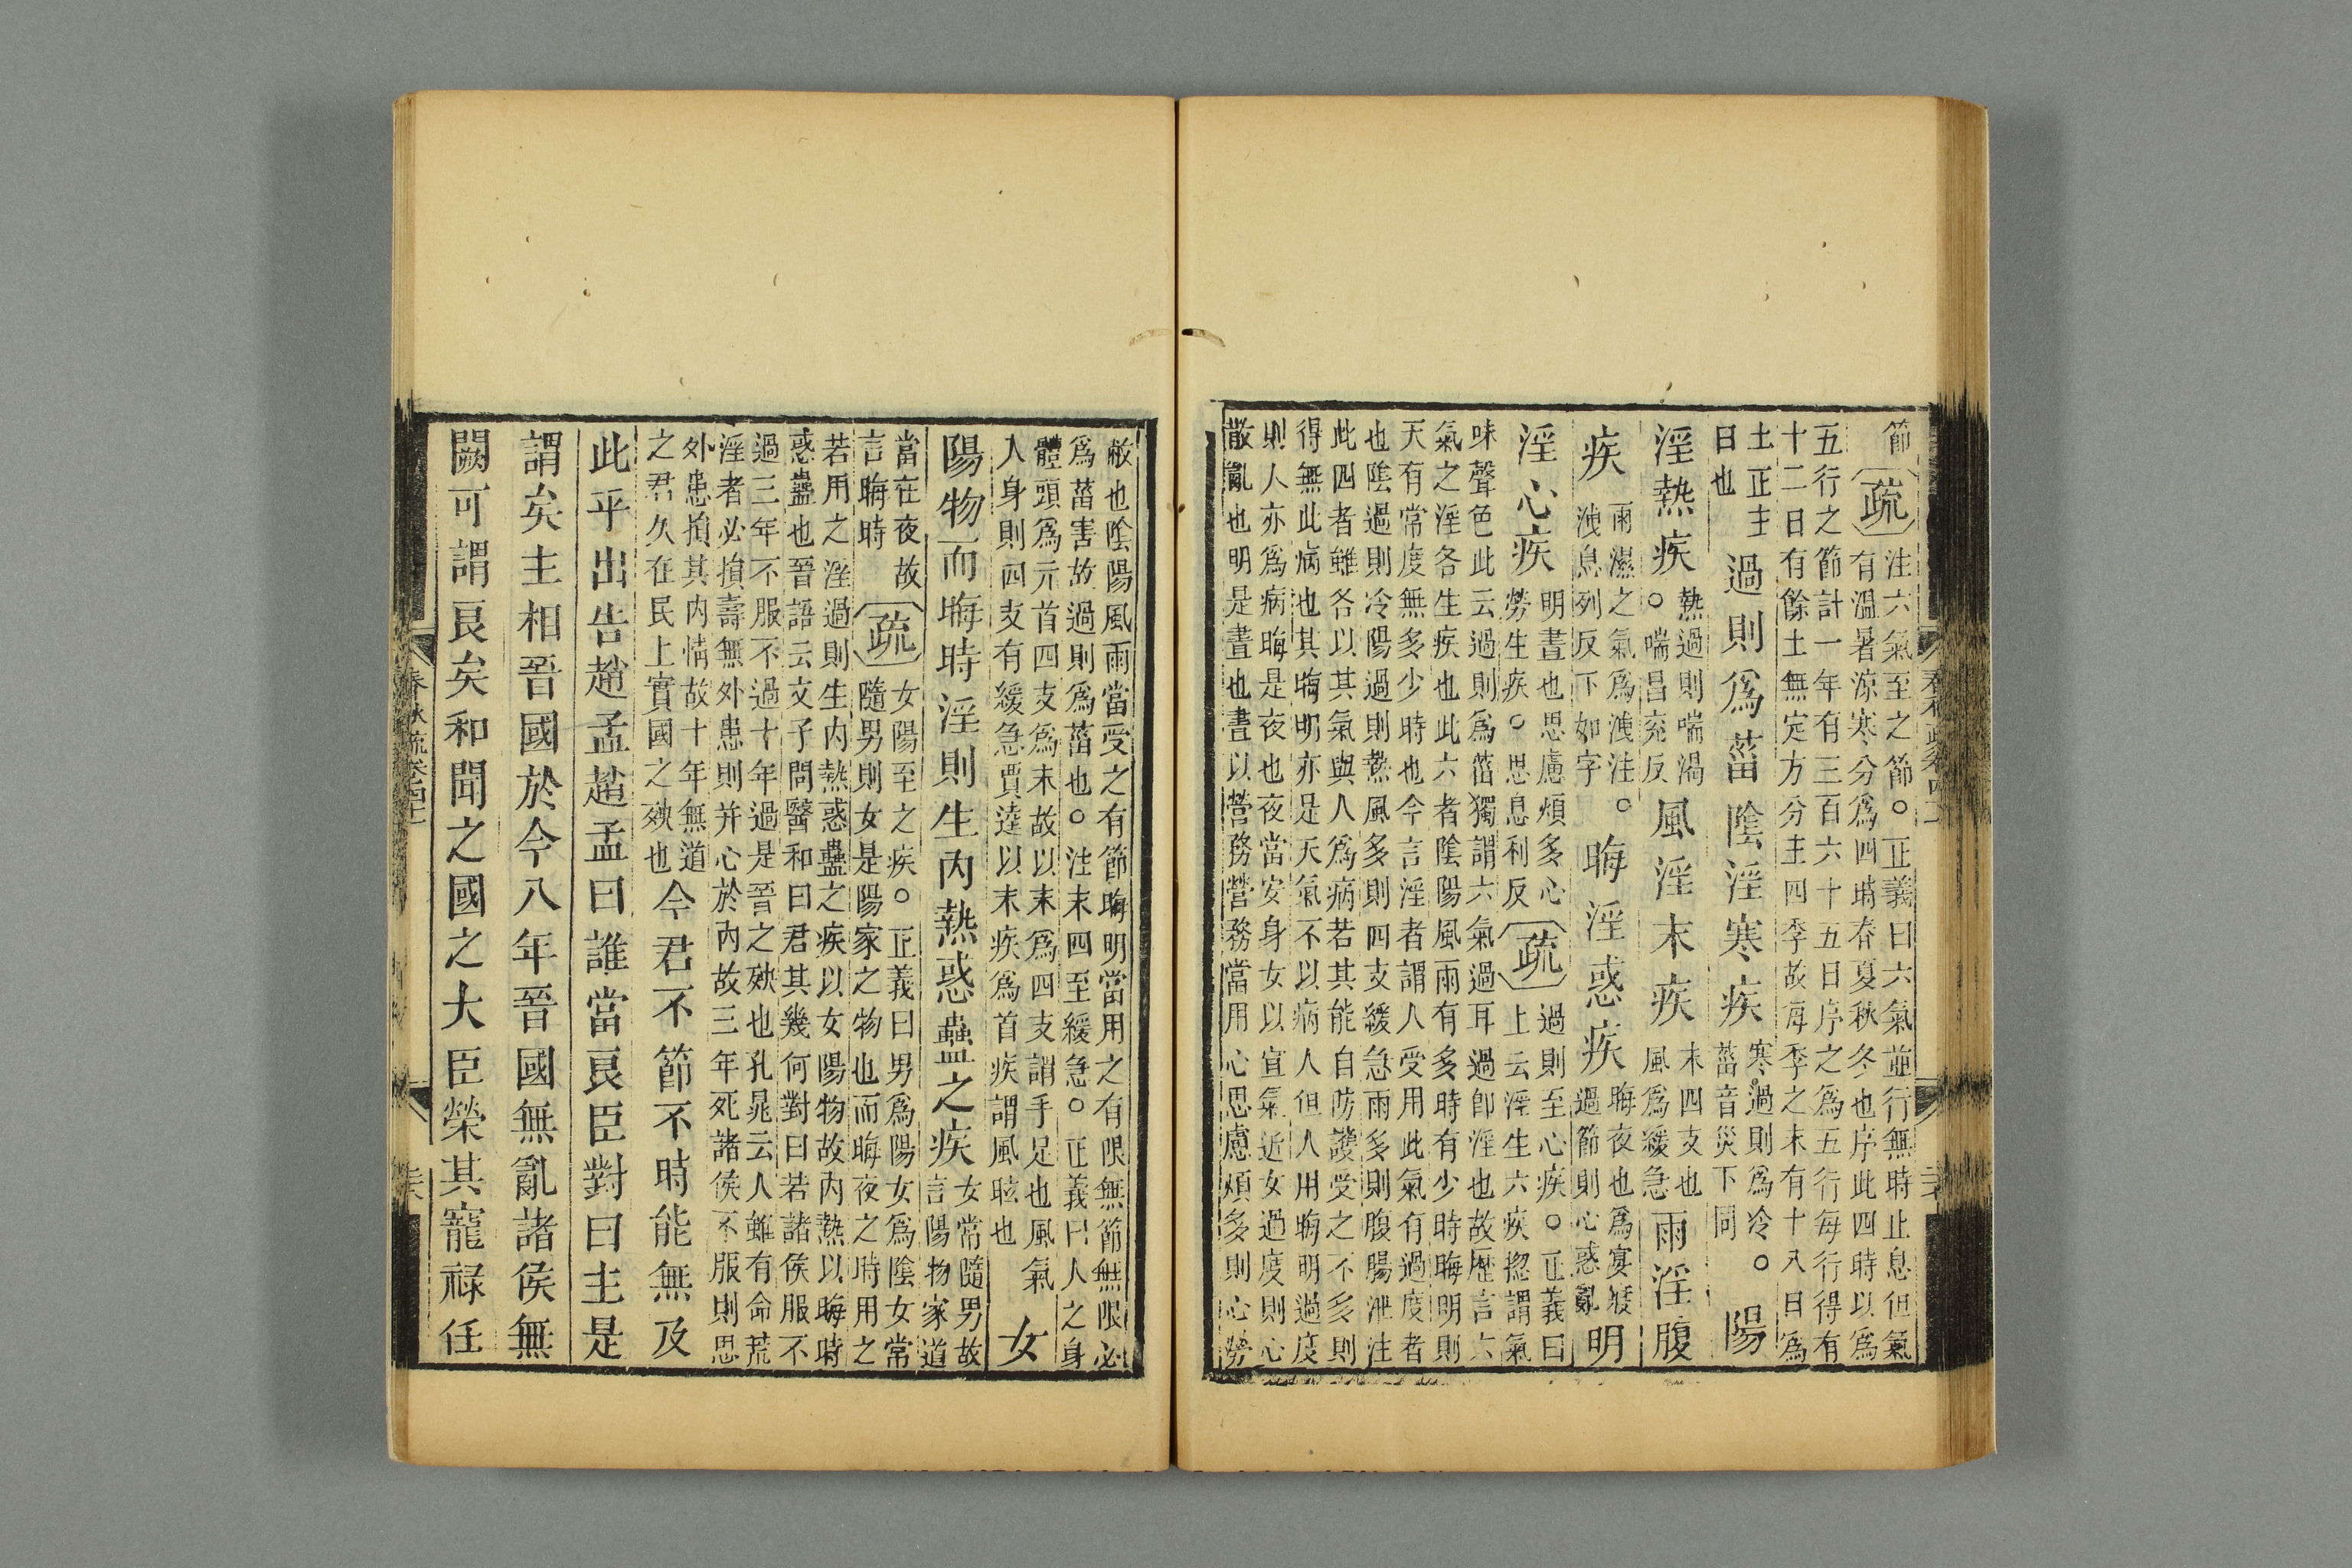 節【疏】注六氣至之節○正義曰六氣並行無時止息但氣
有溫暑涼寒分爲四時春夏秋冬也序此四時以爲
五行之節計一年有三百六十五日序之爲五行每行得有
十二日有餘土無定方分主四季故每季之末有十八日爲
土正主
日也 過則爲菑陰淫寒疾 寒過則爲冷○
菑音災下同 陽
淫熱疾 熱過則喘渴
○喘昌兖反 風淫末疾 末四支也
風爲緩急 雨淫腹
疾 雨濕之氣爲洩注○
洩息列反下如字 晦淫惑疾 晦夜也爲宴寢
過節則心惑亂 明
淫心疾 明晝也思慮煩多心
勞生疾○思息利反【疏】過則至心疾○正義曰
上云淫生六疾揔謂氣
味聲色此云過則爲菑獨謂六氣過耳過卽淫也故歷言六
氣之淫各生疾也此六者陰陽風雨有多時有少時晦明則
天有常度無多少時也今言淫者謂人受用此氣有過度者
也陰過則冷陽過則熱風多則四支緩急雨多則腹腸泄注
此四者雖各以其氣與人爲病若其能自防護受之不多則
得無此病也其晦明亦是天氣不以病人但人用晦明過度
則人亦爲病晦是夜也夜當安身女以宣氣近女過度則心
散亂也明是晝也晝以營務營務當用心思慮煩多則心勞
敝也陰陽風雨當受之有節晦明當用之有限無節無限必
爲菑害故過則爲菑也○注末四至緩急○正義曰人之身
體頭爲元首四支爲末故以末爲四支謂手足也風氣
人身則四支有緩急賈逵以末疾爲首疾謂風眩也 女
陽物而晦時淫則生內熱惑蠱之疾 女常隨男故
言陽物家道
當在夜故
言晦時【疏】女陽至之疾○正義曰男爲陽女爲陰女常
隨男則女是陽家之物也而晦夜之時用之
若用之淫過則生內熱惑蠱之疾以女陽物故內熱以晦時
惑蠱也晉語云文子問醫和曰君其幾何對曰若諸侯服不
過三年不服不過十年過是晉之殃也孔晁云人雖有命荒
淫者必損壽無外患則并心於內故三年死諸侯不服則思
外患損其內情故十年無道
之君久在民上實國之殃也 今君不節不時能無及
此乎出告趙孟趙孟曰誰當良臣對曰主是
謂矣主相晉國於今八年晉國無亂諸侯無
闕可謂良矣和聞之國之大臣榮其寵祿任
春秋疏卷四十一